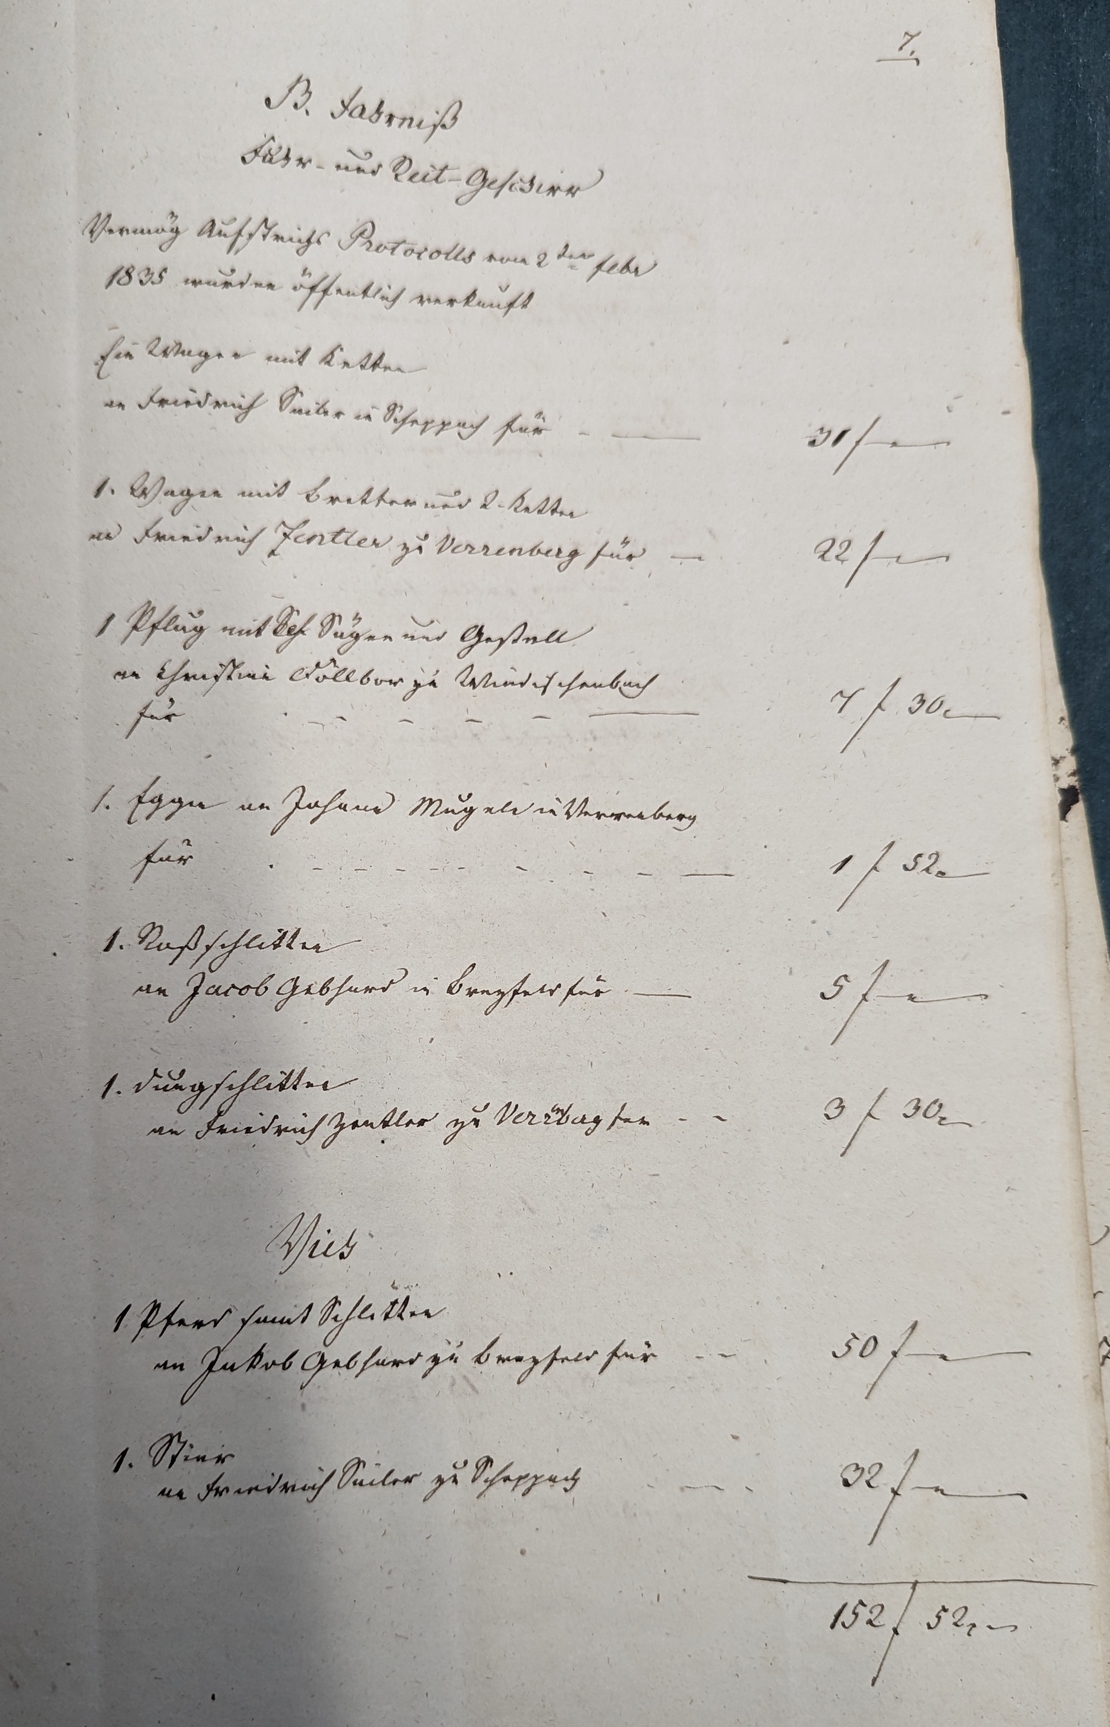 7.
B. Fahrniß
Fuhr- und Reit-Geschirr
Vermög Aufstreichs Protocolls vom 2ten Febr
1835 wurden öffentlich verkauft
Ein Wagen mit Ketten
an Friedrich Sailer in Scheppach für - — 31 f —
1. Wagen mit Bretter und 2. Ketten
an Friedrich Zentler zu Verrenberg für — 22 f —
1 Pflug mit Sägen und Gestell
an Christian zu Windischenbach
für - - - - — 7 f 30 x
1. Eggen an Johann Mugele in Verrenberg
für - - - - - - — 1 f 52 x
1. Roßschlitten
an Jacob Gebhard in Brezfeld für — 5 f —
1. Dungschlitten
an Friedrich Zentler zu Verrenberg für - - 3 f 30 x
Vieh
1 Pferd samt Schlitten
an Jakob Gebhard zu Brezfeld für - - 50 f —
1. Stier
an Friedrich Sailer zu Scheppach - — - 32 f —
152 f 52 x